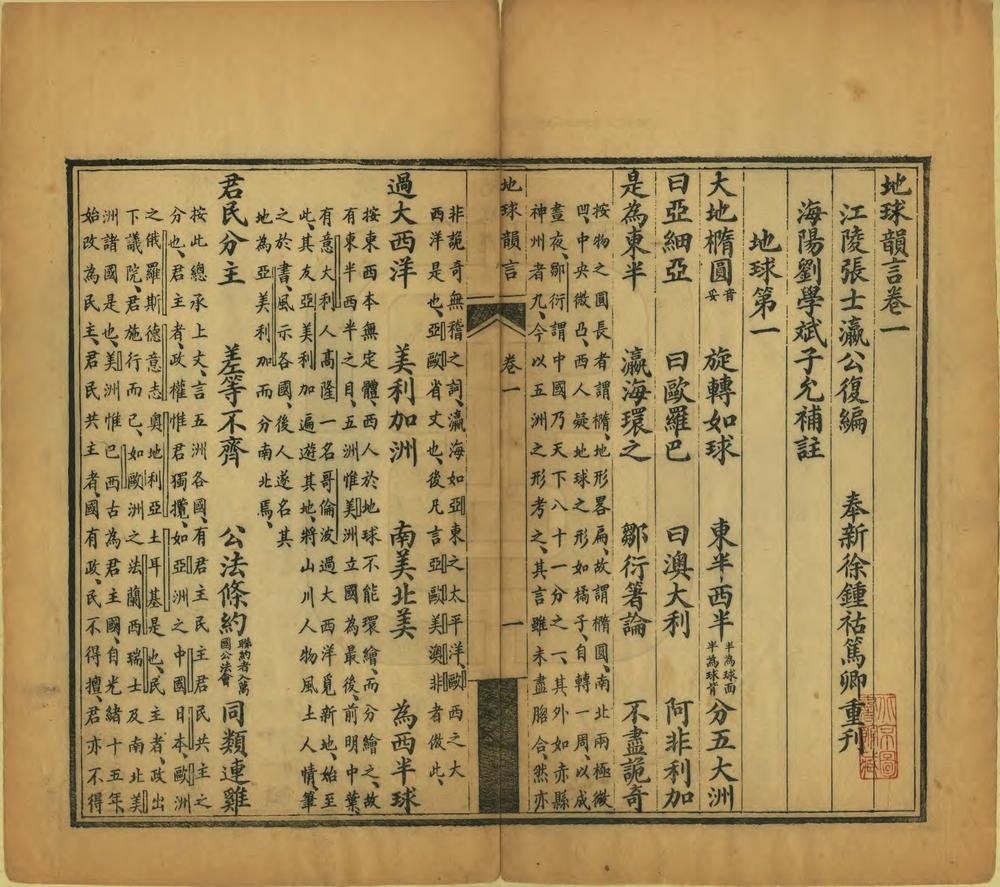 地球韻言卷一
江陵張士瀛公復編 奉新徐鍾祜篤卿重刊
海陽劉學斌子允補註
地球第一
大地橢圓音妥 旋轉如球 東半西半半為球面半為球背 分五大洲
曰亞細亞 曰歐羅巴 曰澳大利 阿非利加
是為東半 瀛海環之 鄒衍箸論 不盡詭奇
按物之圓長者謂橢、地形畧扁、故謂橢圓、南北兩極微
凹、中央微凸、西人疑地球之形如橘子、自轉一周、以成
晝夜、鄒衍謂中國乃天下八十一分之一、其外如赤縣
神州者九、今以五洲之形考之、其言雖未盡脗合、然亦
地球韻言 卷一 一
非詭奇無稽之詞、瀛海如亞東之太平洋、歐西之大
西洋是也、亞歐省文也、後凡言亞歐美澳非者倣此、
過大西洋 美利加洲 南美北美 為西半球
按東西本無定體、西人於地球不能環繪、而分繪之、故
有東半西半之目、五洲惟美洲立國為最後、前明中葉、
有意大利人高隆一名哥倫波過大西洋覓新地、始至
此、其友亞美利加遍遊其地、將山川人物風土人情、筆
之於書、風示各國、後人遂名其
地為亞美利加而分南北焉、
君民分主 差等不齊 公法條約聯約者入萬國公法會 同類連雞
按此總承上文、言五洲各國、有君主民主君民共主之
分也、君主者、政權惟君獨攬、如亞洲之中國日本歐洲
之俄羅斯德意志奧地利亞土耳基是也、民主者、政出
下議院、君施行而已、如歐洲之法蘭西瑞士及南北美
洲諸國是也、美洲惟巴西古為君主國、自光緒十五年、
始改為民主、君民共主者、國有政、民不得擅、君亦不得